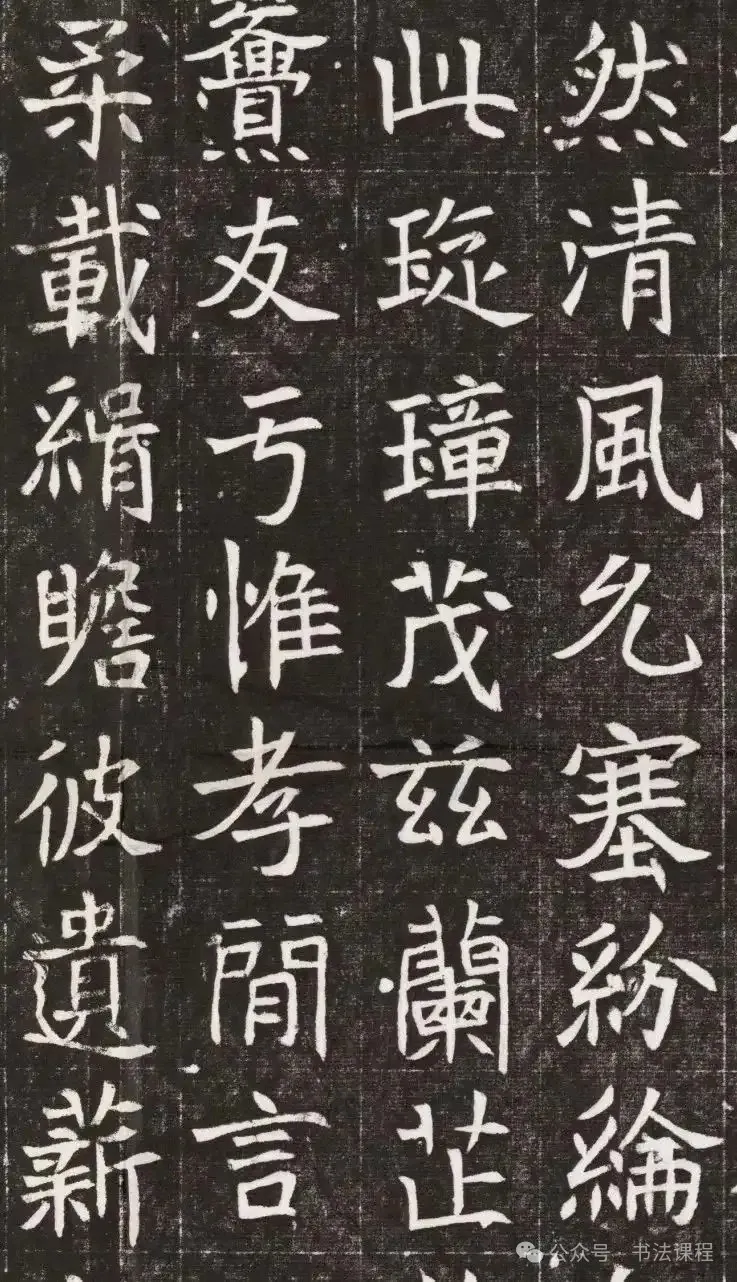 然清風允塞紛綸
此琁璋茂兹蘭芷
友亏惟孝閒言
柔載緝瞻彼遺薪
公众号 · 书法课程